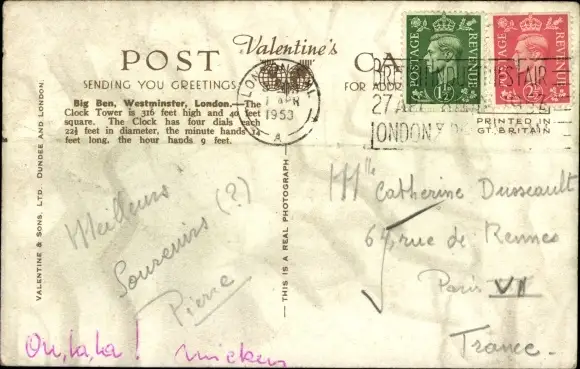 Valentine's
POST CA
SENDING YOU GREETINGS
FOR ADDR
Big Ben, Westminster, London.—The
Clock Tower is 316 feet high and 40 feet
square. The Clock has four dials each
22½ feet in diameter, the minute hands 14
feet long, the hour hands 9 feet.
VALENTINE & SONS, LTD. DUNDEE AND LONDON.
THIS IS A REAL PHOTOGRAPH
1953
A
POSTAGE REVENUE
1½D
POSTAGE REVENUE
2½D
FAIR
27
LONDON
PRINTED IN
GT. BRITAIN
Meilleurs
Souvenirs (?)
Pierre
Mlle Catherine Dusseault
64, rue de Rennes
Paris VI
France.
Ou, la, la!